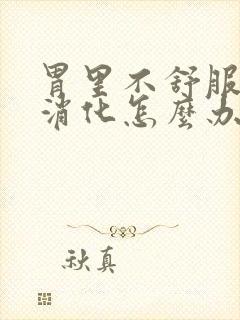 胃里不舒服
消化怎麽办
秋真